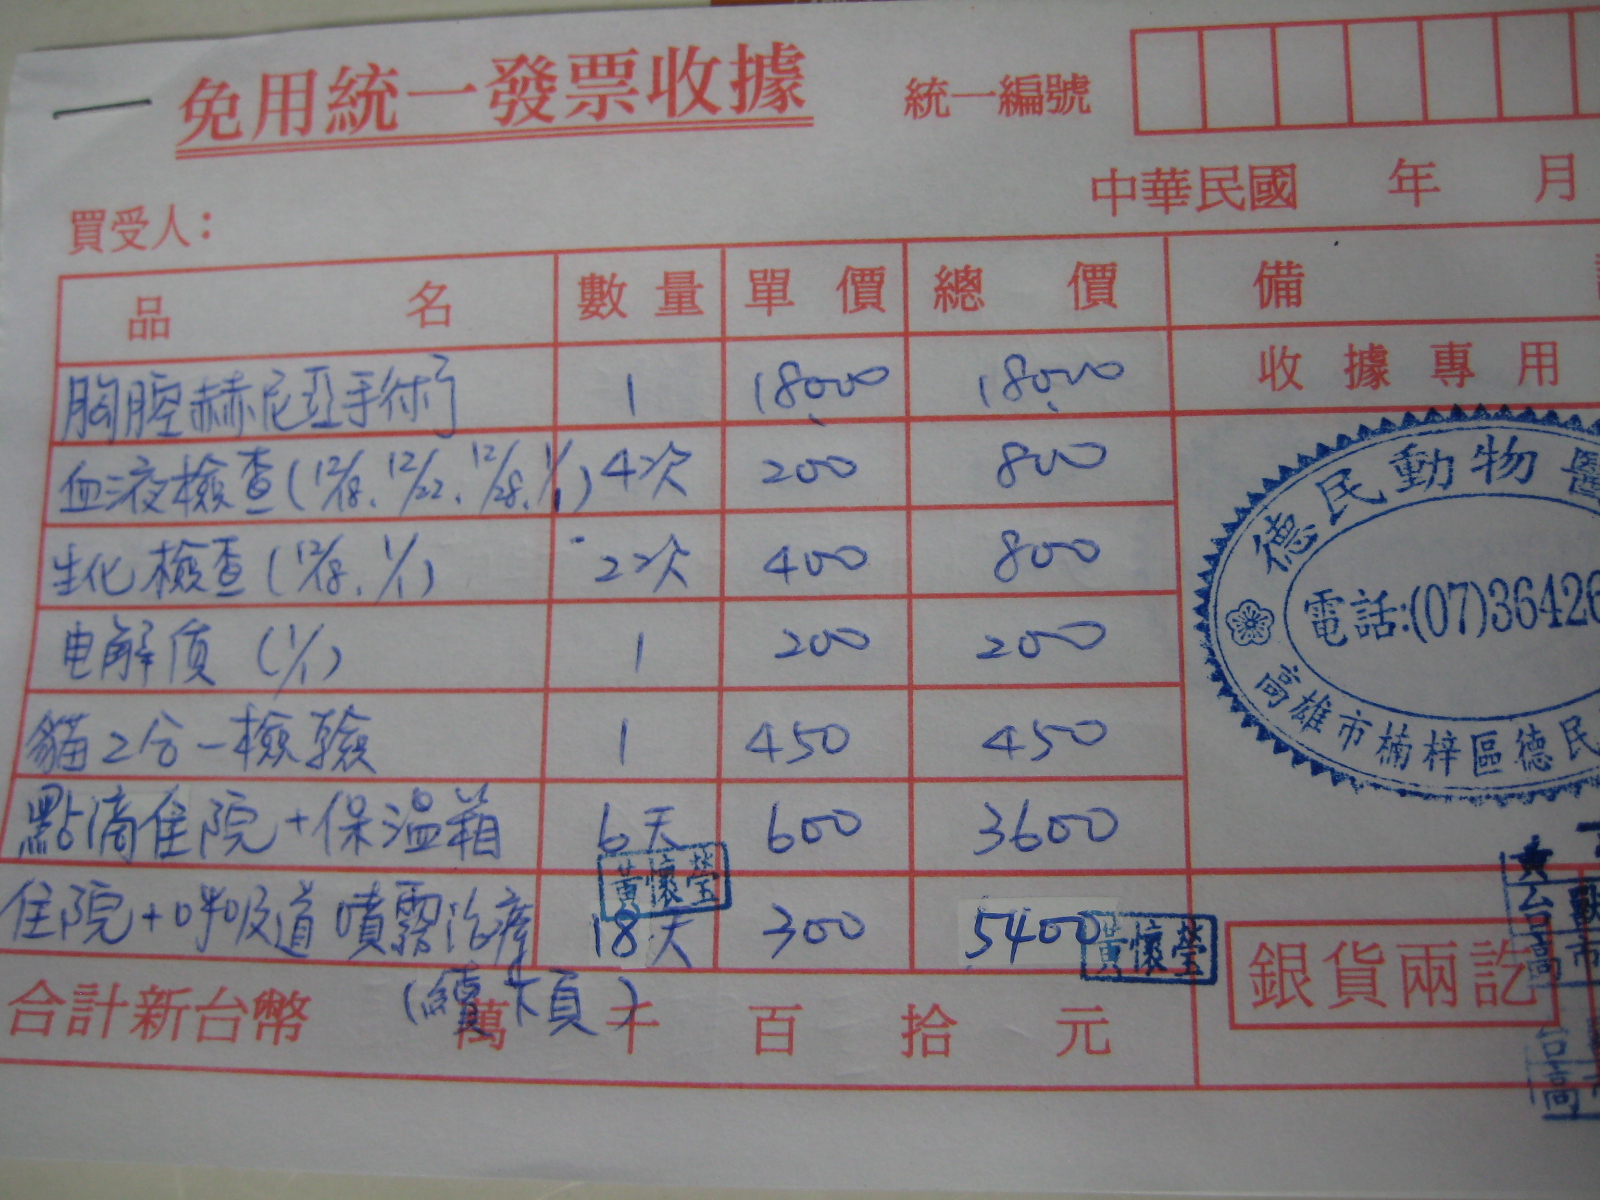 免用統一發票收據
統一編號
中華民國 年 月
買受人：
品名 數量 單價 總價 備
收據專用
胸腔赫尼亞手術 1 18000 18000
血液檢查(12/18、12/22、12/28、1/1) 4次 200 800
生化檢查(12/18、1/1) 2次 400 800
电解质 (1/1) 1 200 200
貓2合一檢驗 1 450 450
點滴住院+保溫箱 6天 600 3600
黃懷瑩
住院+呼吸道噴霧治療 18天 300 5400
黃懷瑩
(續下頁)
合計新台幣 萬 千 百 拾 元
銀貨兩訖
德民動物醫
電話:(07)36426
高雄市楠梓區德民